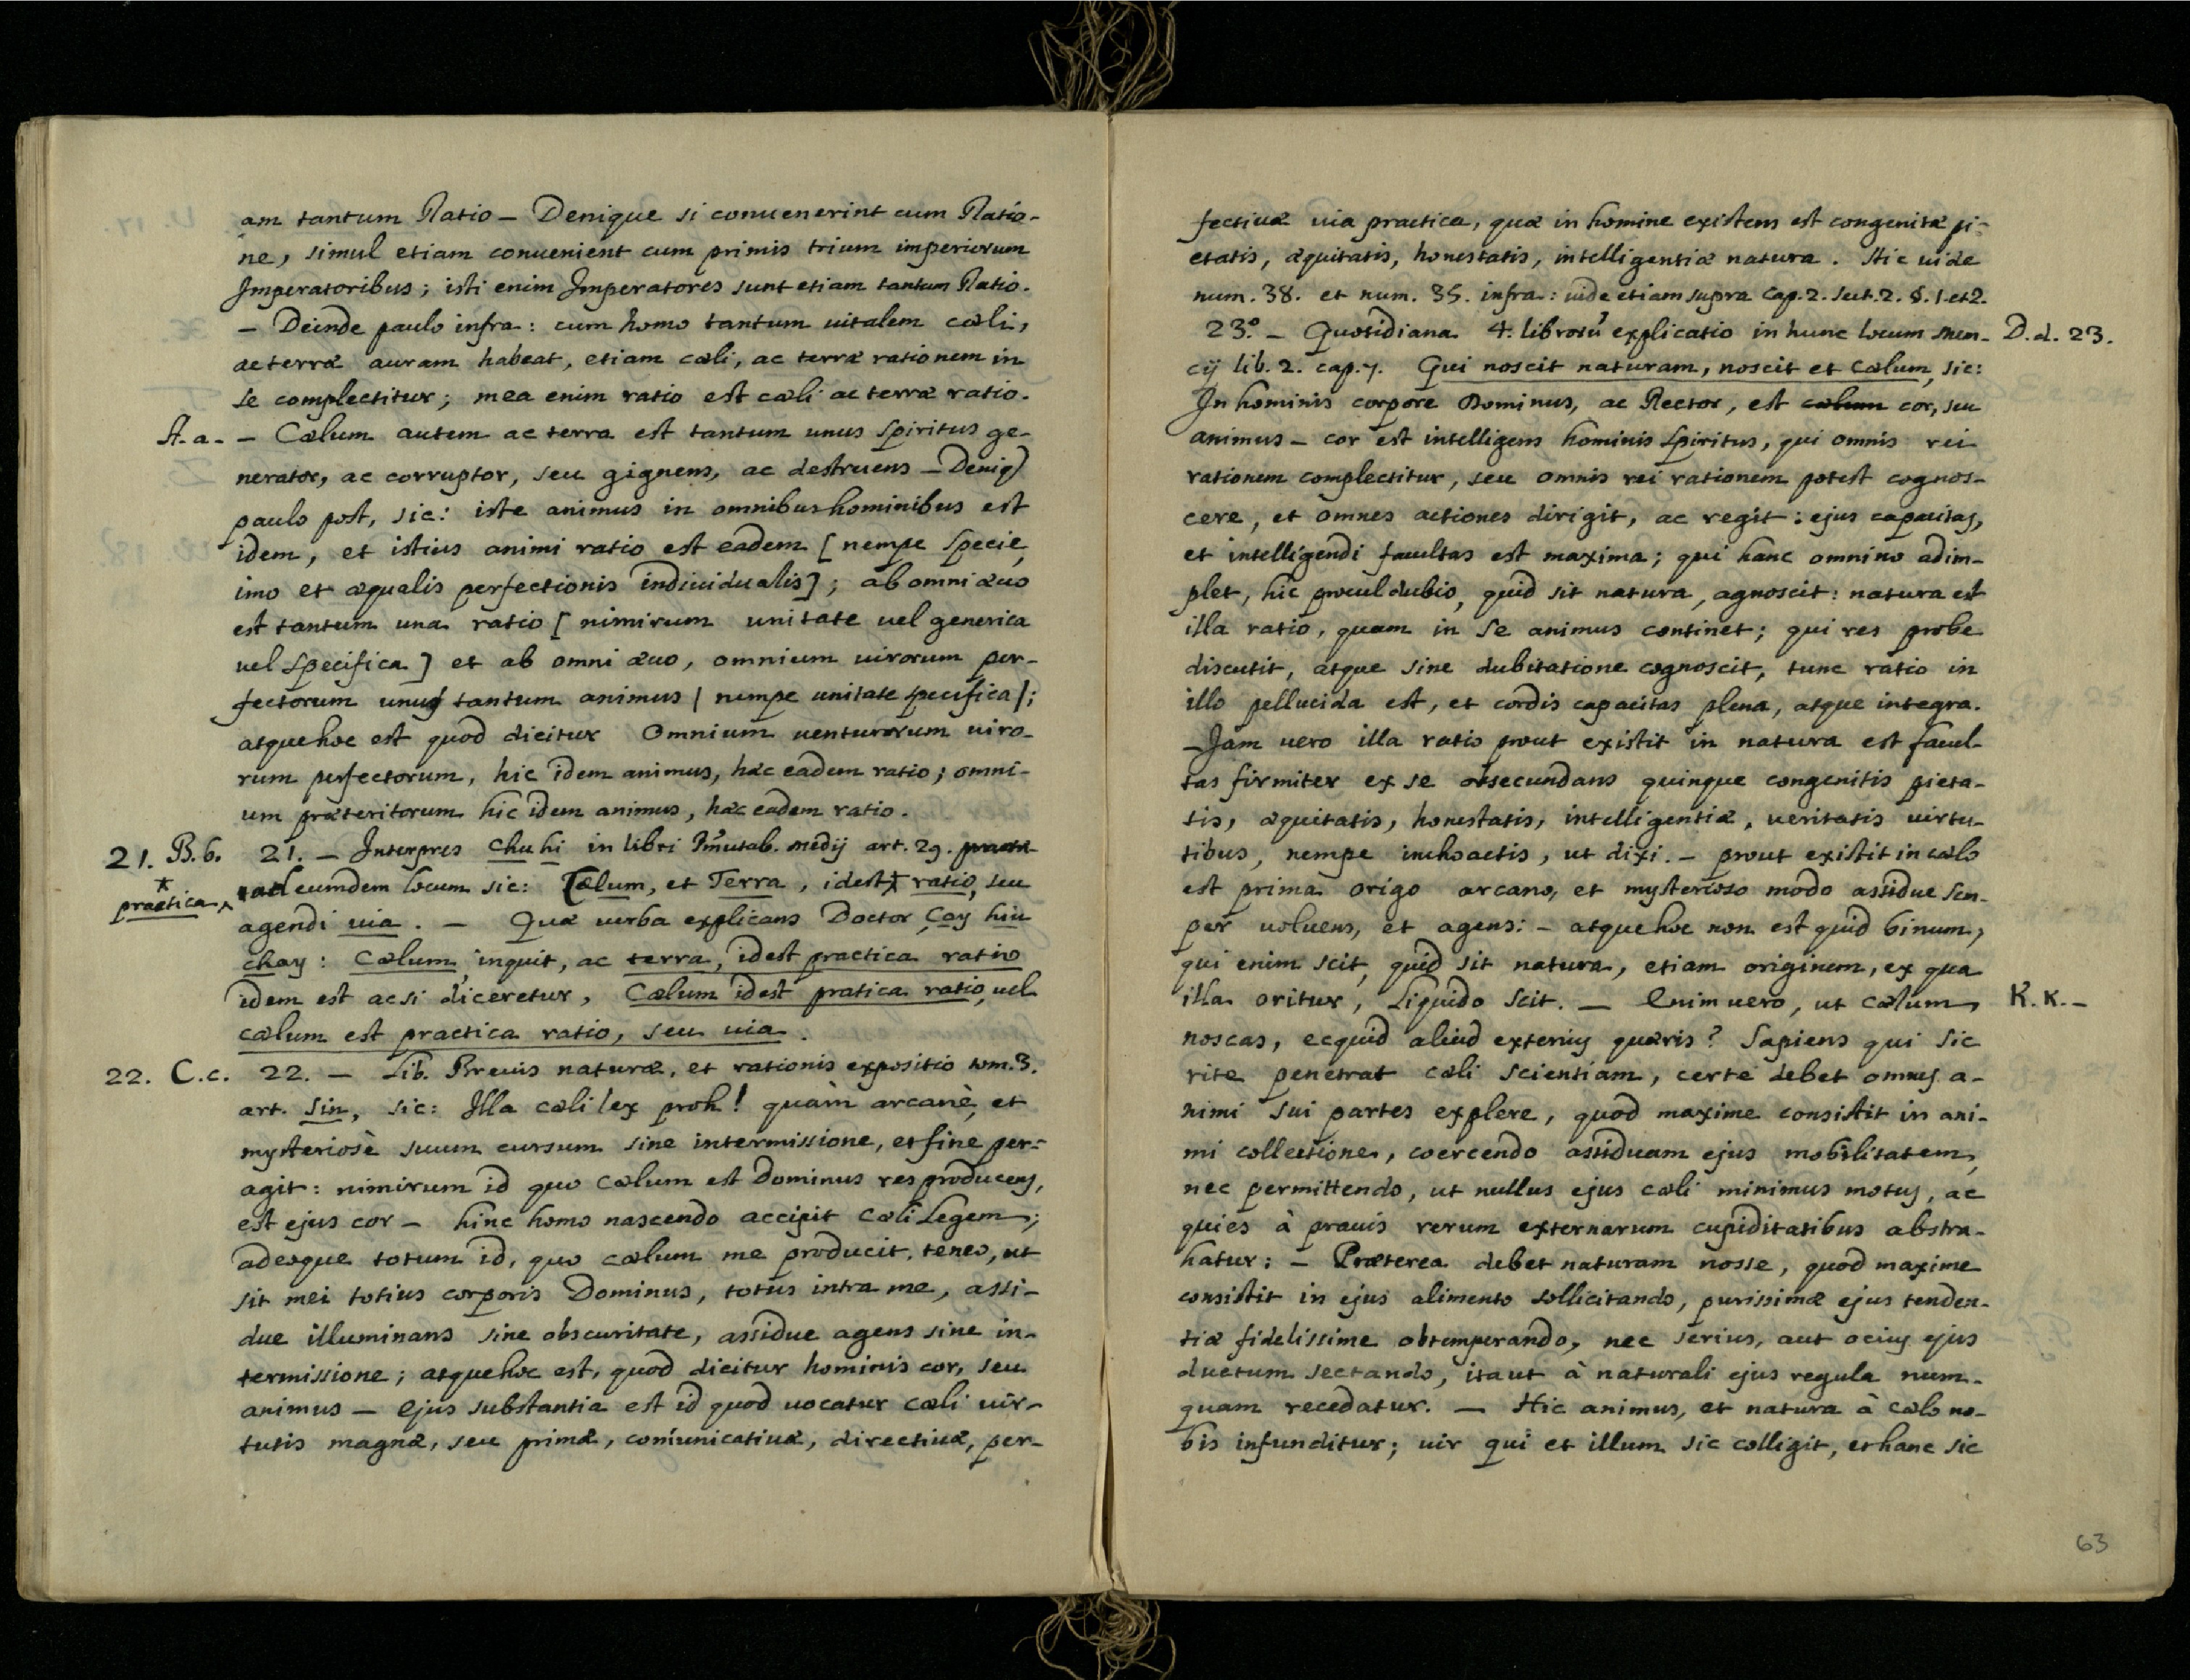 am tantum Ratio – Denique si conuenerint cum Ratio-
ne, simul etiam conuenient cum primis trium imperiorum
Imperatoribus; isti enim Imperatores sunt etiam tantum Ratio.
– Deinde paulo infra: cum homo tantum uitalem cæli,
ac terræ auram habeat, etiam cæli, ac terræ rationem in
se complectitur; mea enim ratio est cæli ac terræ ratio.
A. a. – – Cælum autem ac terra est tantum unus spiritus ge-
nerator, ac corruptor, seu gignens, ac destruens – Deniq)
paulo post, sic: iste animus in omnibus hominibus est
idem, et istius animi ratio est eadem [ nempe specie,
imo et æqualis perfectionis indiuidualis]; ab omni æuo
est tantum una ratio [ nimirum unitate uel generica
uel specifica ] et ab omni æuo, omnium uirorum per-
fectorum unus tantum animus [ nempe unitate specifica ];
atque hoc est quod dicitur Omnium uenturorum uiro-
rum perfectorum, hic idem animus, hæc eadem ratio; omni-
um præteritorum hic idem animus, hæc eadem ratio.
21. B. b. 21. – Interpres Chu hi in libri Im̃utab. medij art. 29.
* practica ad eumdem locum sic: Cælum, et Terra, idest * ratio, seu
agendi uia. – Quæ uerba explicans Doctor Cay hiu
chay: Cælum, inquit, ac terra, idest practica ratio
idem est ac si diceretur, Cælum idest pratica ratio, uel
cælum est practica ratio, seu uia.
22. C. c. 22. – Lib. Breuis naturæ, et rationis expositio tom. 3.
art. Sin, sic: Illa cæli lex proh! quàm arcanè, et
mysteriosè suum cursum sine intermissione, et fine per-
agit: nimirum id quo Cælum est Dominus res producens,
est ejus cor – hinc homo nascendo accipit Cæli Legem;
adeoque totum id, quo cælum me producit, teneo, ut
sit mei totius corporis Dominus, totus intra me, assi-
due illuminans sine obscuritate, assidue agens sine in-
termissione; atque hoc est, quod dicitur hominis cor, seu
animus – Ejus substantia est id quod uocatur cæli uir-
tutis magnæ, seu primæ, com̃unicatiuæ, directiuæ, per-
fectiuæ uia practica, quæ in homine existens est congenitæ pi-
etatis, æquitatis, honestatis, intelligentiæ natura. Hic uide
num. 38. et num. 35. infra: uide etiam supra Cap. 2. sect. 2. §. 1. et 2.
23.° – Quotidiana 4. librorũ explicatio in hunc locum Men- D. d. 23.
cij lib. 2. cap. 7. Qui noscit naturam, noscit et Cælum, sic:
In hominis corpore Dominus, ac Rector, est cælum cor, seu
animus – cor est intelligens hominis spiritus, qui omnis rei
rationem complectitur, seu omnis rei rationem potest cognos-
cere, et omnes actiones dirigit, ac regit: ejus capacitas,
et intelligendi facultas est maxima; qui hanc omnino adim-
plet, hic procul dubio, quid sit natura, agnoscit: natura est
illa ratio, quam in se animus continet; qui res probe
discutit, atque sine dubitatione cognoscit, tunc ratio in
illo pellucida est, et cordis capacitas plena, atque integra.
– Jam uero illa ratio prout existit in natura est facul-
tas firmiter ex se obsecundans quinque congenitis pieta-
tis, æquitatis, honestatis, intelligentiæ, ueritatis uirtu-
tibus, nempe inchoactis, ut dixi. – prout existit in cælo
est prima origo arcano, et mysterioso modo assidue sem-
per uoluens, et agens: – atque hoc non est quid binum,
qui enim scit, quid sit natura, etiam originem, ex qua
illa oritur, liquido scit. – Enim uero, ut Cælum K. K. –
noscas, ecquid aliud exterius quæris? Sapiens qui sic
rite penetrat cæli scientiam, certe debet omnes a-
nimi sui partes explere, quod maxime consistit in ani-
mi collectione, coercendo assiduam ejus mobilitatem,
nec permittendo, ut nullus ejus cæli minimus motus, ac
quies à prauis rerum externarum cupiditatibus abstra-
hatur: – Præterea debet naturam nosse, quod maxime
consistit in ejus alimento sollicitando, purissimæ ejus tenden-
tiæ fidelissime obtemperando, nec serius, aut ocius ejus
ductum sectando, ita ut à naturali ejus regula num-
quam recedatur. – Hic animus, et natura à Cælo no-
bis infunditur; uir qui et illum sic colligit, et hanc sic
63